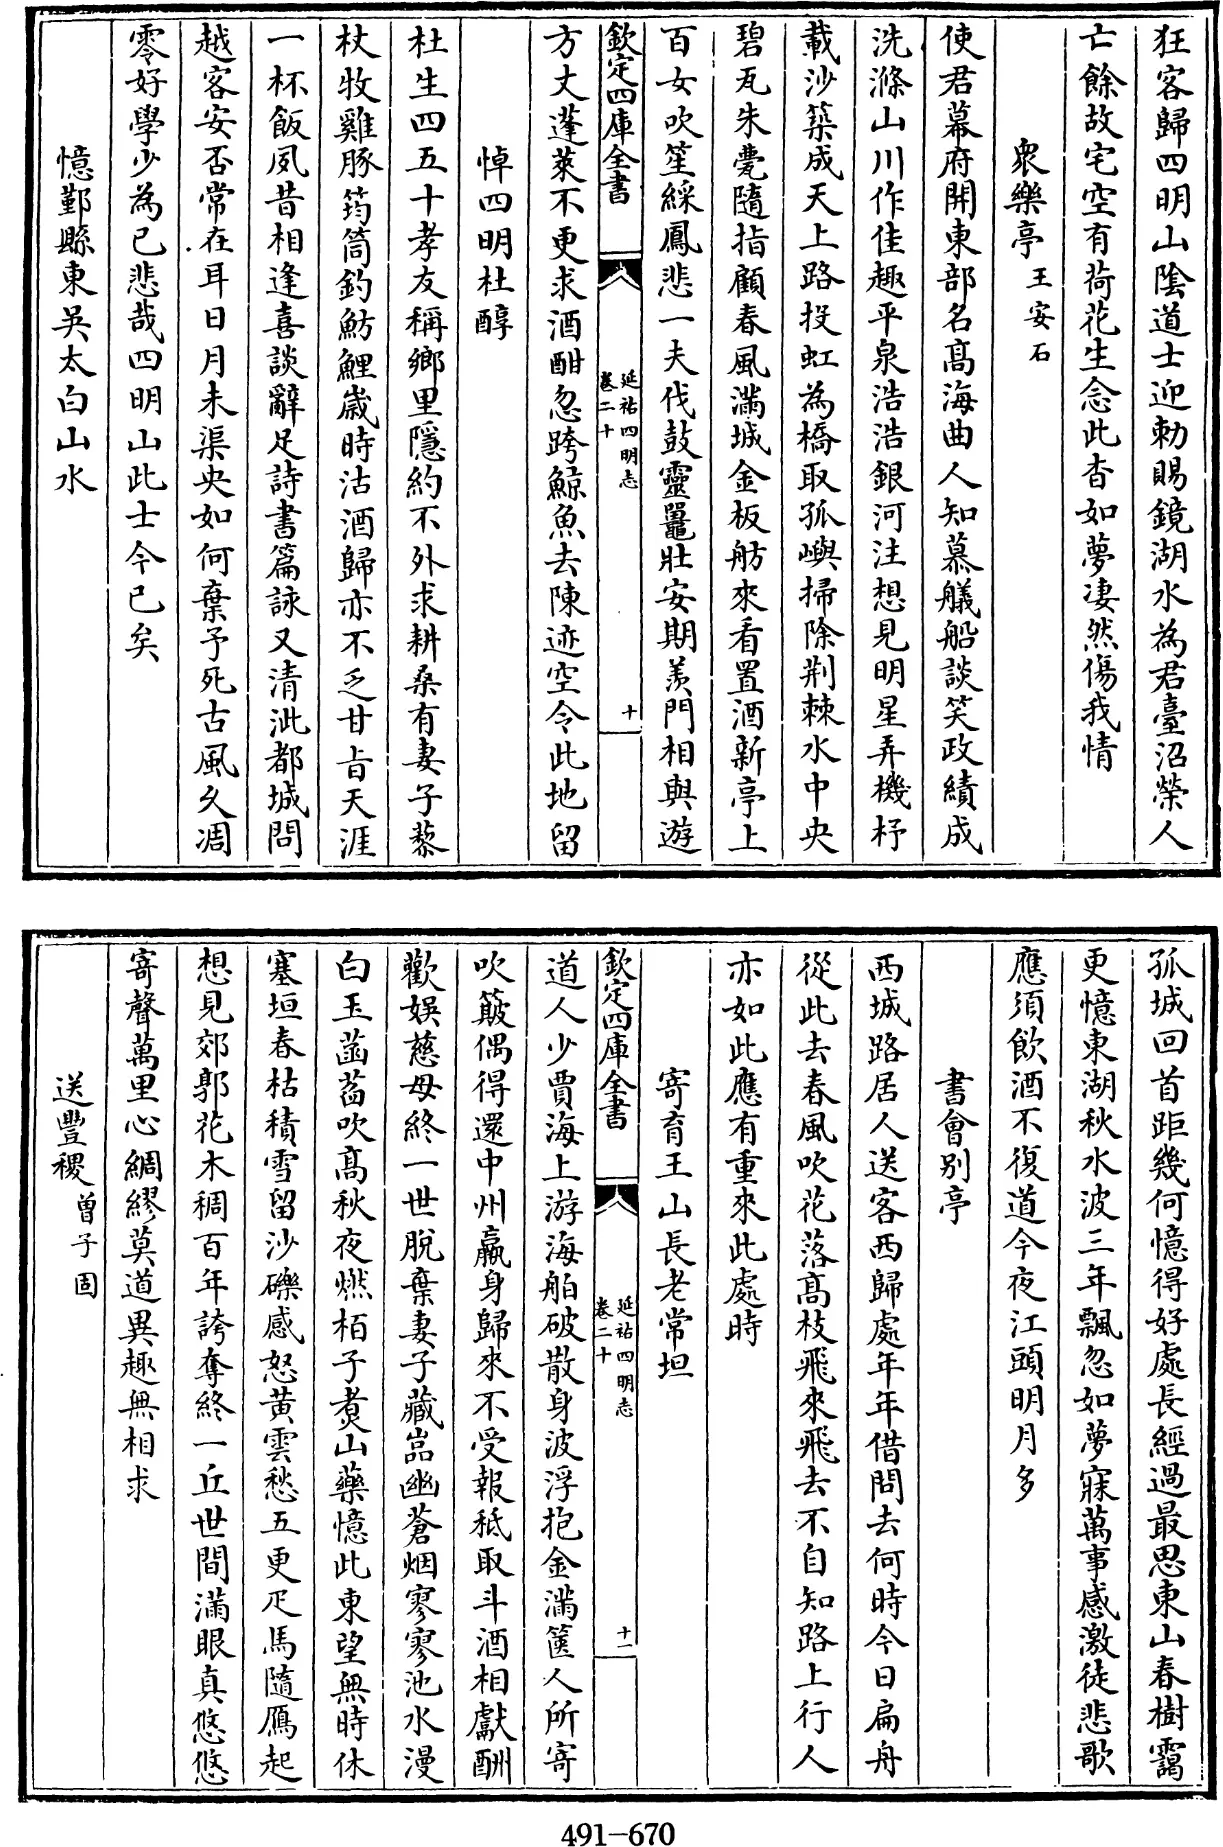 狂客歸四明山陰道士迎勅賜鏡湖水為君臺沼榮人
亡餘故宅空有荷花生念此杳如夢凄然傷我情
衆樂亭王安石
使君幕府開東部名髙海曲人知慕艤船談笑政績成
洗滌山川作佳趣平泉浩浩銀河注想見明星弄機杼
載沙築成天上路投虹為橋取孤嶼掃除荆棘水中央
碧瓦朱甍隨指顧春風滿城金板舫來看置酒新亭上
百女吹笙綵鳳悲一夫伐鼓靈鼉壯安期羨門相與遊
欽定四庫全書
延祐四明志
卷二十
十
方丈蓬萊不更求酒酣忽跨鯨魚去陳迹空令此地留
悼四明杜醇
杜生四五十孝友稱鄉里隱約不外求耕桑有妻子藜
杖牧雞豚筠筒釣魴鯉嵗時沽酒歸亦不乏甘㫖天涯
一杯飯夙昔相逢喜談辭足詩書篇詠又清泚都城問
越客安否常在耳日月未渠央如何棄予死古風久凋
零好學少為己悲哉四明山此士今已矣
憶鄞縣東吳太白山水
孤城回首距幾何憶得好處長經過最思東山春樹靄
更憶東湖秋水波三年飄忽如夢寐萬事感激徒悲歌
應須飲酒不復道今夜江頭明月多
書會别亭
西城路居人送客西歸處年年借問去何時今日扁舟
從此去春風吹花落髙枝飛來飛去不自知路上行人
亦如此應有重來此處時
寄育王山長老常坦
欽定四庫全書
延祐四明志
卷二十
十一
道人少賈海上游海舶破散身波浮抱金滿篋人所寄
吹簸偶得還中州羸身歸來不受報秪取斗酒相獻酬
歡娱慈母終一世脱棄妻子藏嵓幽蒼烟寥寥池水漫
白玉菡萏吹髙秋夜燃栢子煮山藥憶此東望無時休
塞垣春枯積雪留沙礫感怒黄雲愁五更疋馬隨鴈起
想見郊郭花木稠百年誇奪終一丘世間滿眼真悠悠
寄聲萬里心綢繆莫道異趣無相求
送豐稷曾子固
491-670